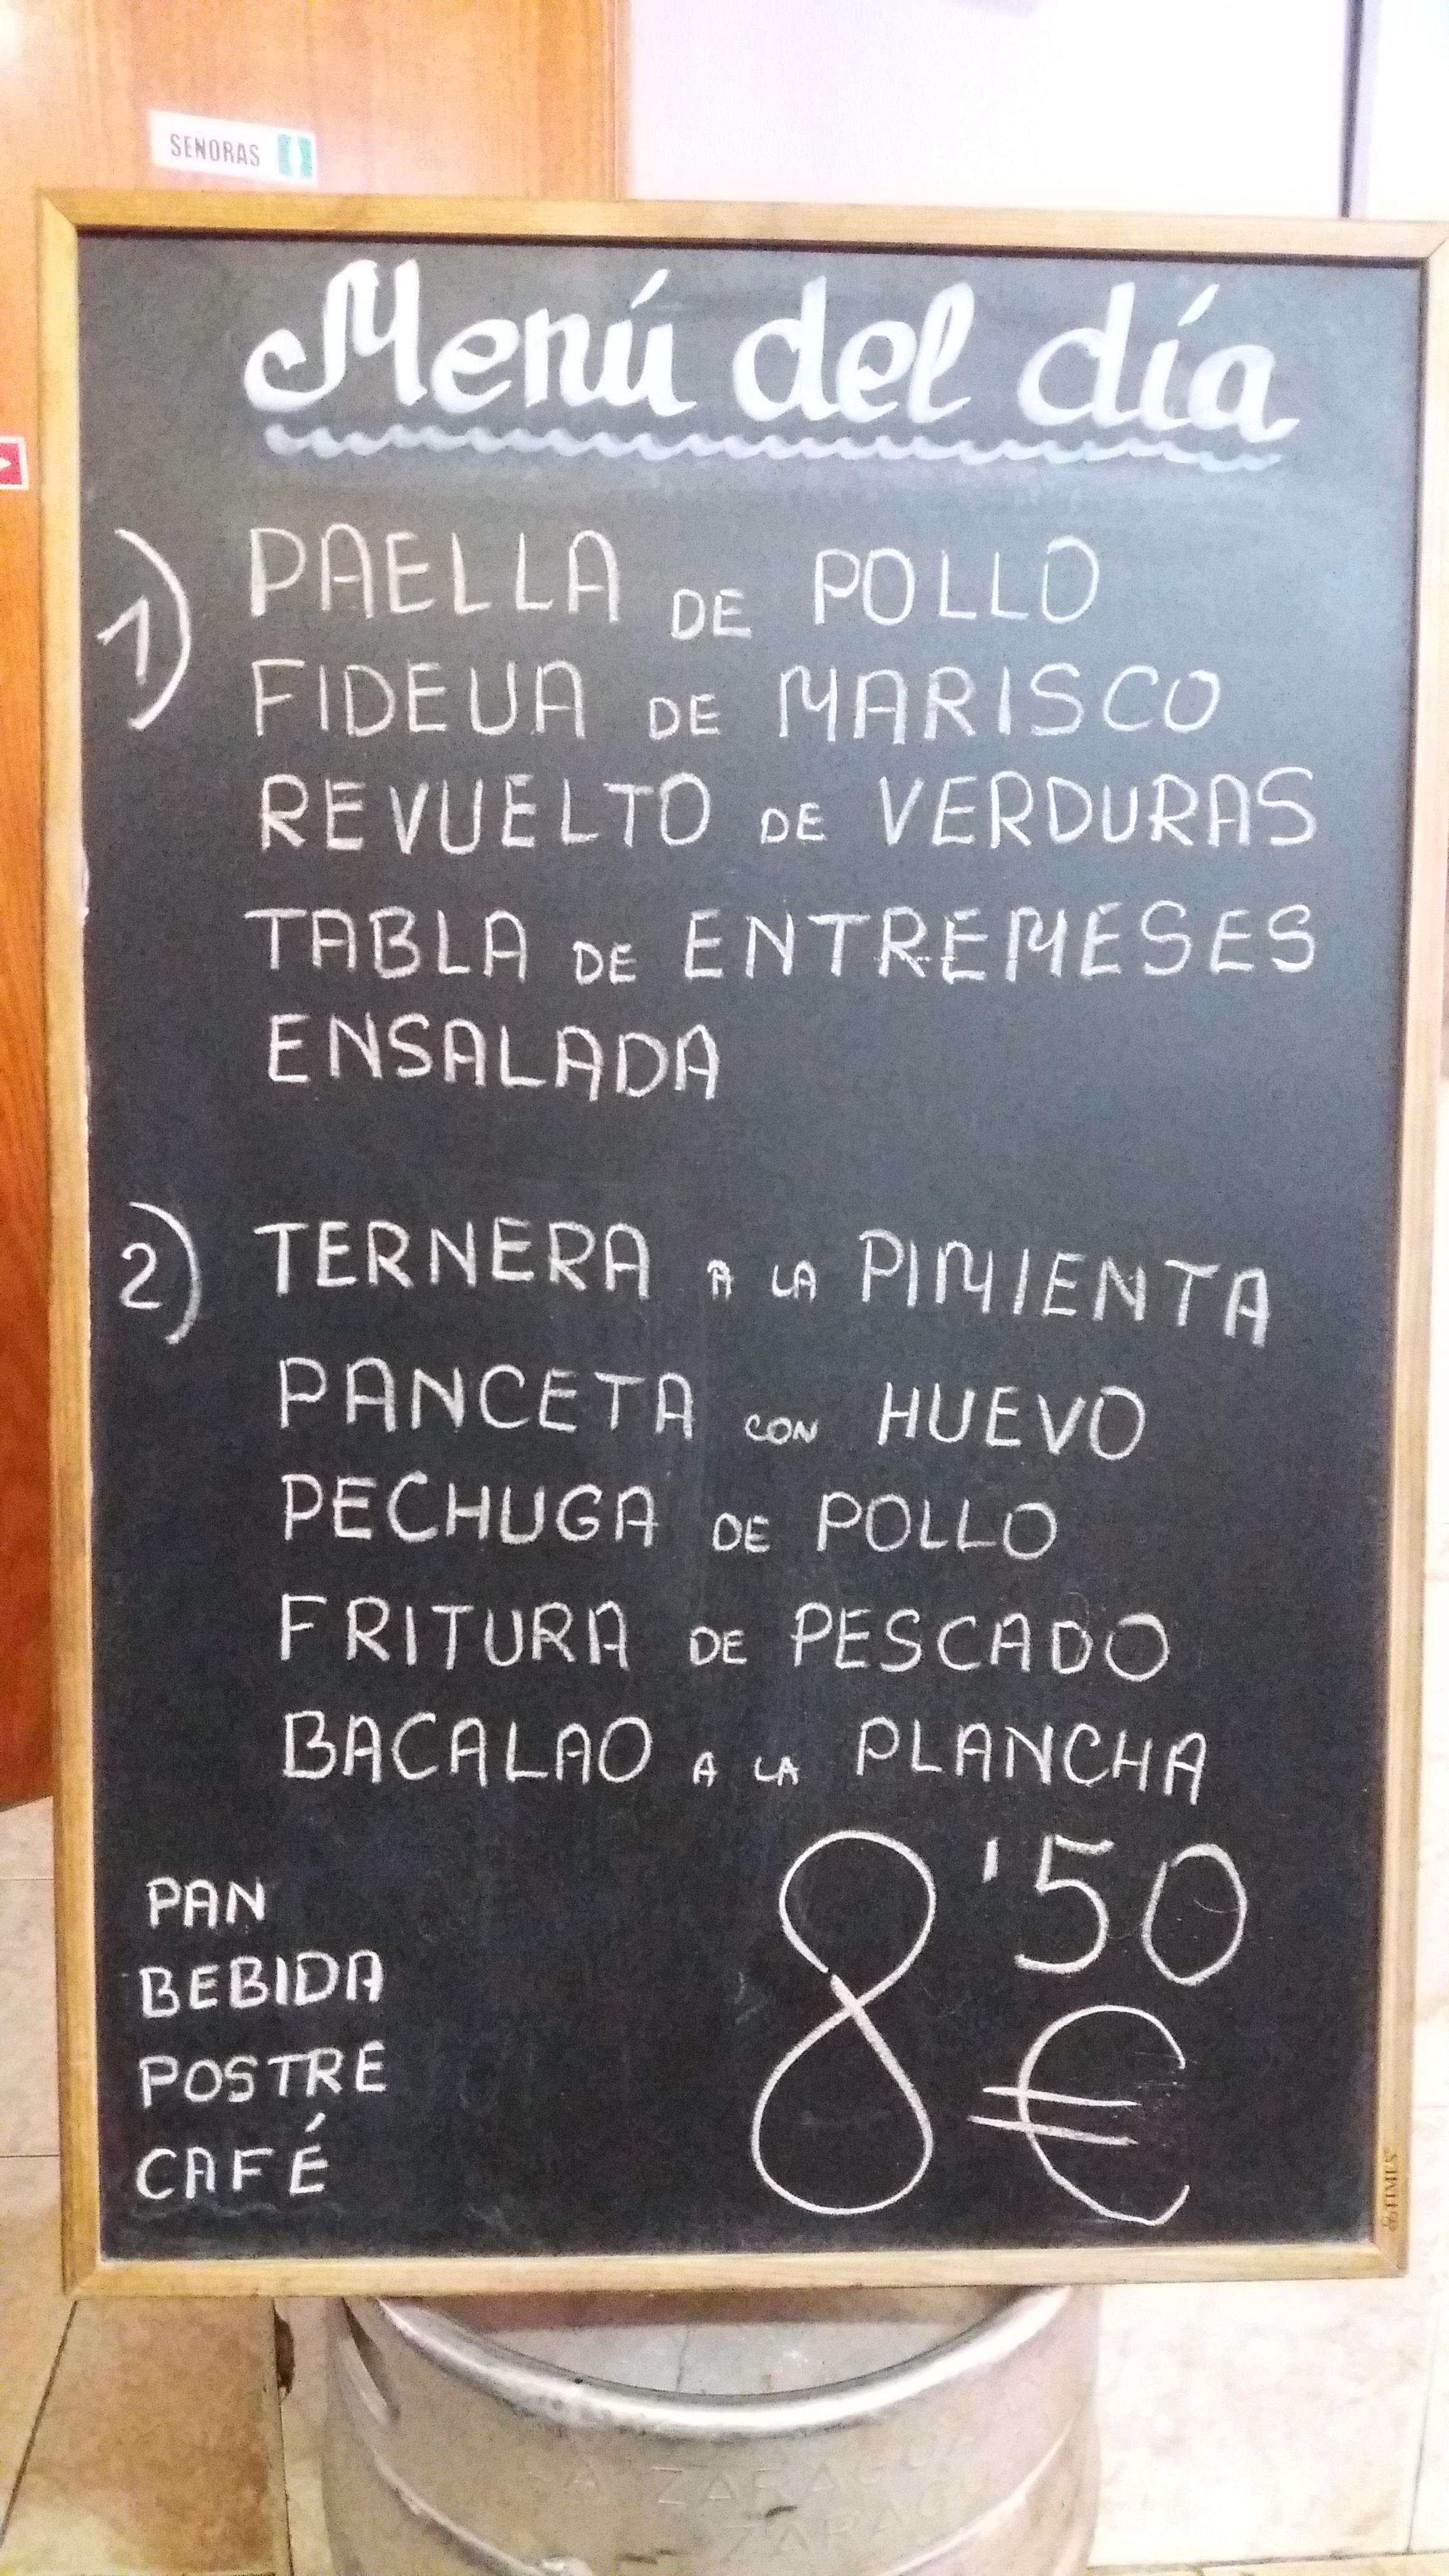 SEÑORAS
Menú del día
1) PAELLA DE POLLO
FIDEUA DE MARISCO
REVUELTO DE VERDURAS
TABLA DE ENTREMESES
ENSALADA
2) TERNERA A LA PIMIENTA
PANCETA CON HUEVO
PECHUGA DE POLLO
FRITURA DE PESCADO
BACALAO A LA PLANCHA
PAN
BEBIDA
POSTRE
CAFÉ
8'50
€
ZARAGOZA